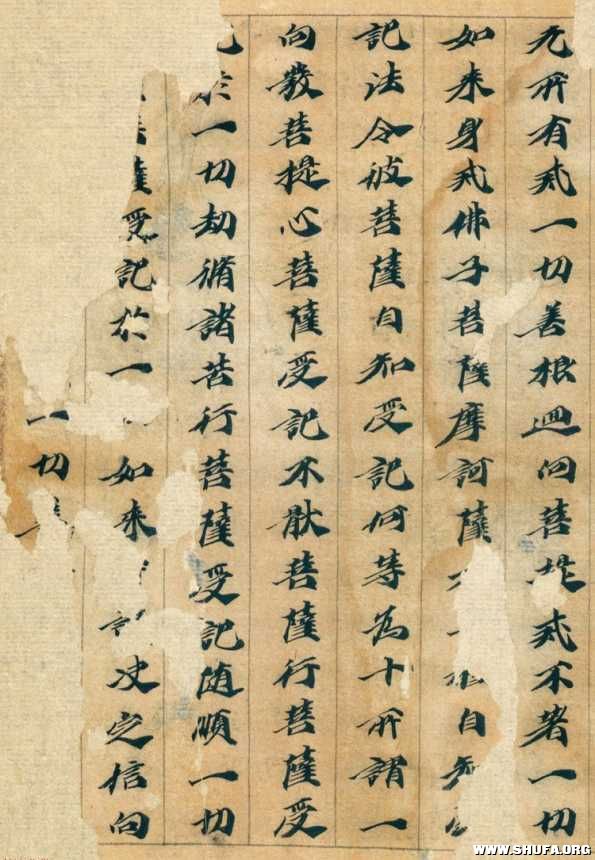 无所有戒一切善根迴向菩提戒不著一切
如来身戒佛子菩薩摩訶薩自知
記法令彼菩薩自知受記何等為十所謂一
向發菩提心菩薩受記不猒菩薩行菩薩受
於一切劫脩諸苦行菩薩受記随順一切
薩受記於一如来決定信向
一切
WWW.SHUFA.ORG